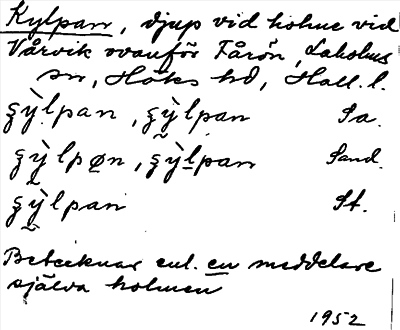 Kylpan, djup vid holme vid
Vårvik ovanför Fårön, Laholms
sn, Höks hd, Hall. l.
ȿỳlpan, ȿỳlpan Sa.
ȿỳlpøn, ȿỳlpan Sand.
ȿỳlpan St.
Betecknar enl. en meddelare
själva holmen
1952